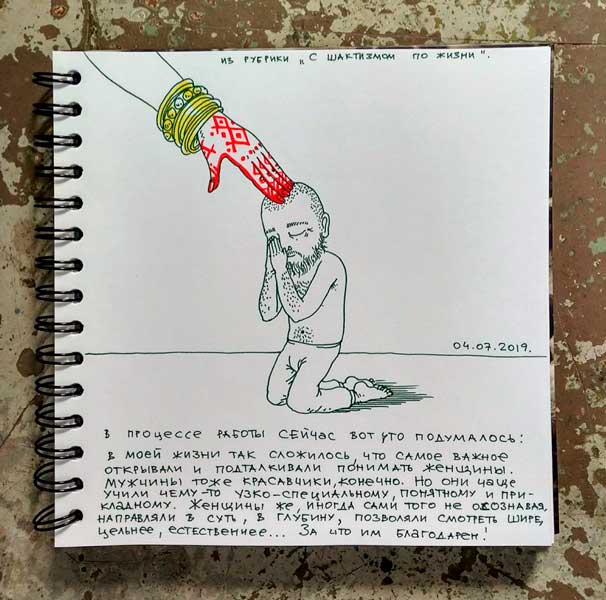 ИЗ РУБРИКИ „С ШАКТИЗМОМ ПО ЖИЗНИ".
04.07.2019.
В ПРОЦЕССЕ РАБОТЫ СЕЙЧАС ВОТ ЧТО ПОДУМАЛОСЬ:
В МОЕЙ ЖИЗНИ ТАК СЛОЖИЛОСЬ, ЧТО САМОЕ ВАЖНОЕ
ОТКРЫВАЛИ И ПОДТАЛКИВАЛИ ПОНИМАТЬ ЖЕНЩИНЫ.
МУЖЧИНЫ ТОЖЕ КРАСАВЧИКИ, КОНЕЧНО. НО ОНИ ЧАЩЕ
УЧИЛИ ЧЕМУ-ТО УЗКО-СПЕЦИАЛЬНОМУ, ПОНЯТНОМУ И ПРИ-
КЛАДНОМУ. ЖЕНЩИНЫ ЖЕ, ИНОГДА САМИ ТОГО НЕ ОСОЗНАВАЯ,
НАПРАВЛЯЛИ В СУТЬ, В ГЛУБИНУ, ПОЗВОЛЯЛИ СМОТРЕТЬ ШИРЕ,
ЦЕЛЬНЕЕ, ЕСТЕСТВЕННЕЕ... ЗА ЧТО ИМ БЛАГОДАРЕН!